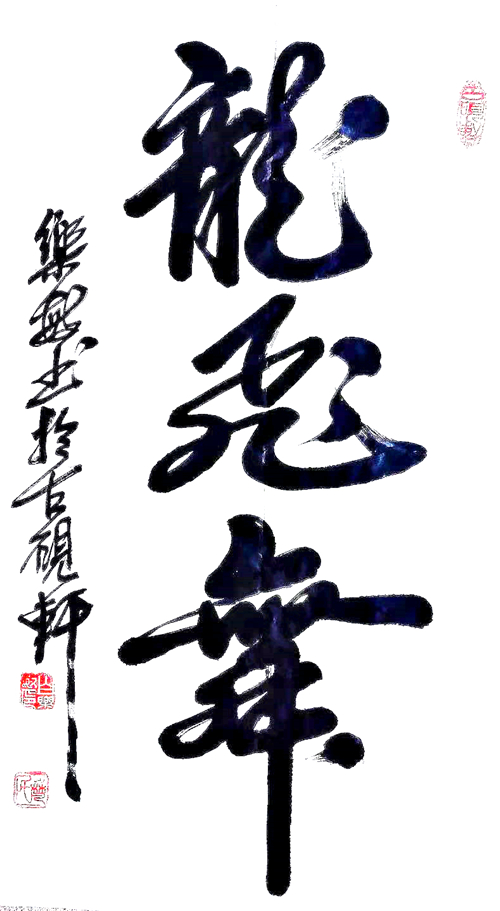 龍飛舞
樂敏书於古硯軒